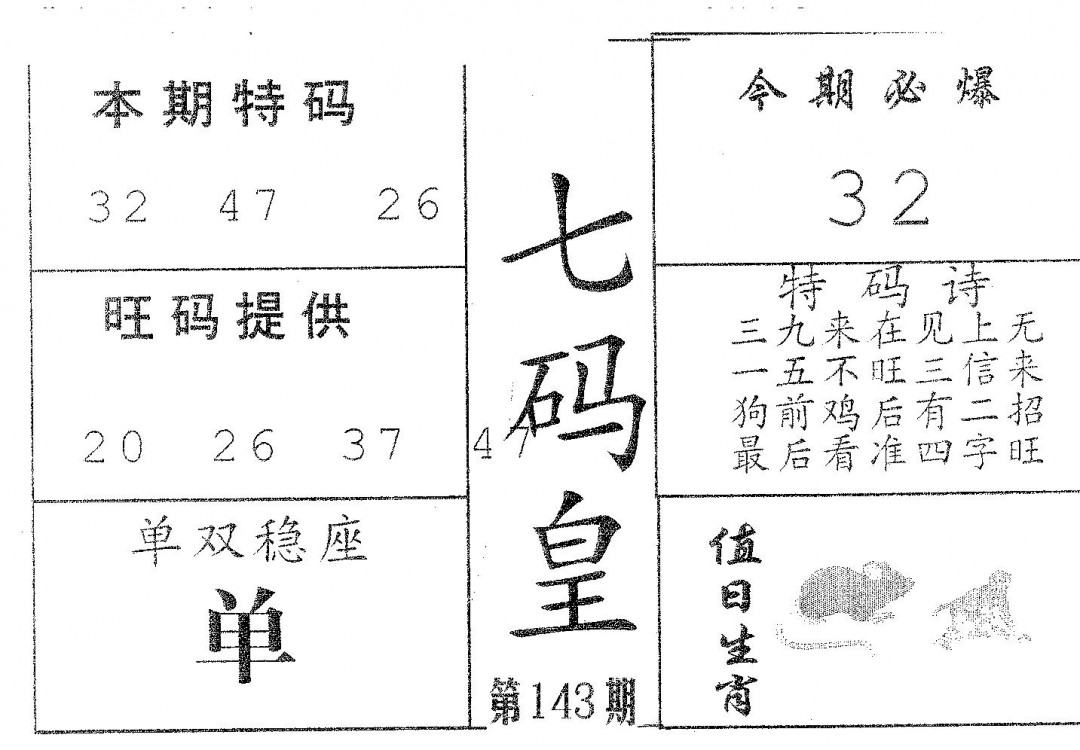 本期特码
32 47 26
旺码提供
20 26 37 47
单双稳座
单
七码皇
第143期
今期必爆
32
特码诗
三九来在见上无
一五不旺三信来
狗前鸡后有二招
最后看准四字旺
值日生肖